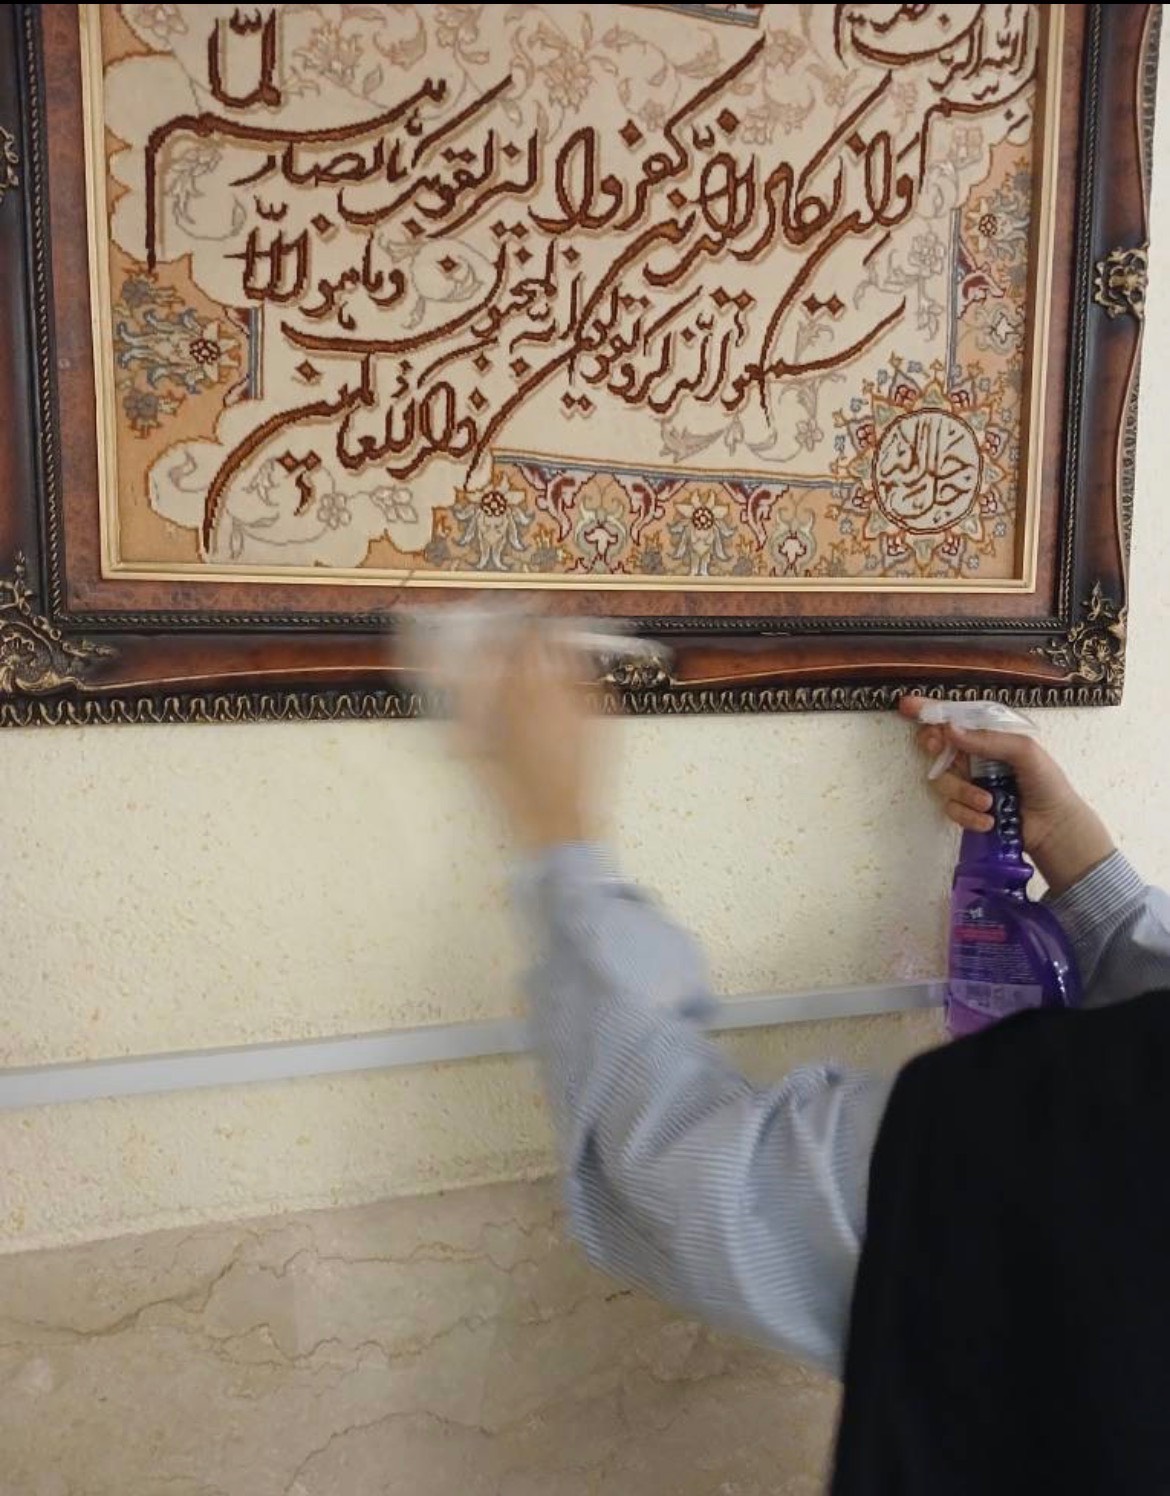 بسم الله الر
وان یکاد الذین کفروا لیزلقونک بابصارهم لما
سمعوا الذکر و یقولون انه لمجنون وما هو الا
ذکر للعالمین
جل جلاله